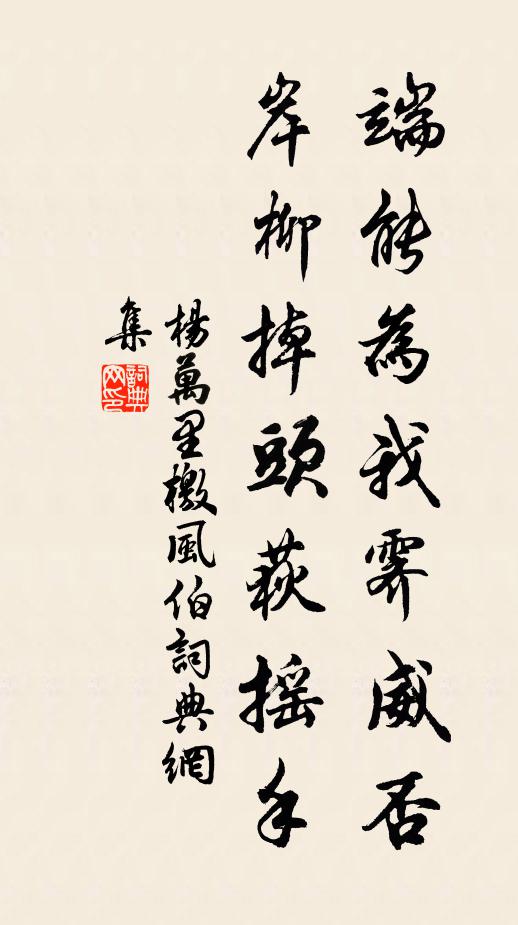 端能為我霽威否
岸柳掉頭荻搖手
楊萬里檄風伯詞典網
集
詞典網印